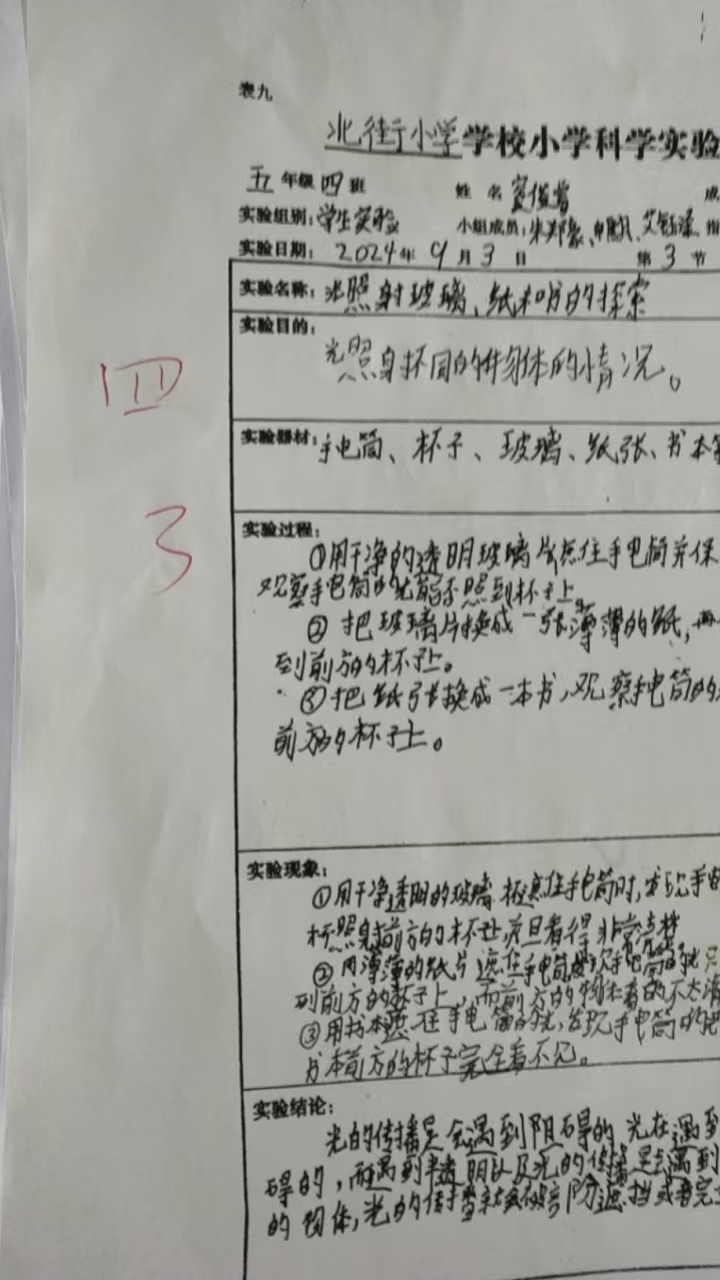 表九
北街小学学校小学科学实验
五年级四班 姓名 成
实验组别：学生实验 小组成员： 指
实验日期：2024年9月3日 第3节
实验名称：光照射玻璃、纸和书的探索
实验目的：
光照射不同的物体的情况。
四
实验器材：手电筒、杯子、玻璃、纸张、书本等
3
实验过程：
①用干净的透明玻璃片遮住手电筒并保
观察手电筒的光能否照到杯子上。
②把玻璃片换成一张薄薄的纸，再
到前方的杯子上。
③把纸张换成一本书，观察手电筒的
前方的杯子上。
实验现象：
①用干净透明的玻璃杯遮住手电筒时，发现手电
杯照射前方的杯子上，并且看得非常
②用薄薄的纸片遮住手电筒发现手电筒的光只
到前方的杯子上，而前方的物体看的不太清
③用书本遮住手电筒的光，发现手电筒的
书本前方的杯子完全看不见。
实验结论：
光的传播是会遇到阻碍的 光在遇到
碍的，而遇到半透明以及光的传播是会遇到
的物体，光的传播就会被 遮挡或者完